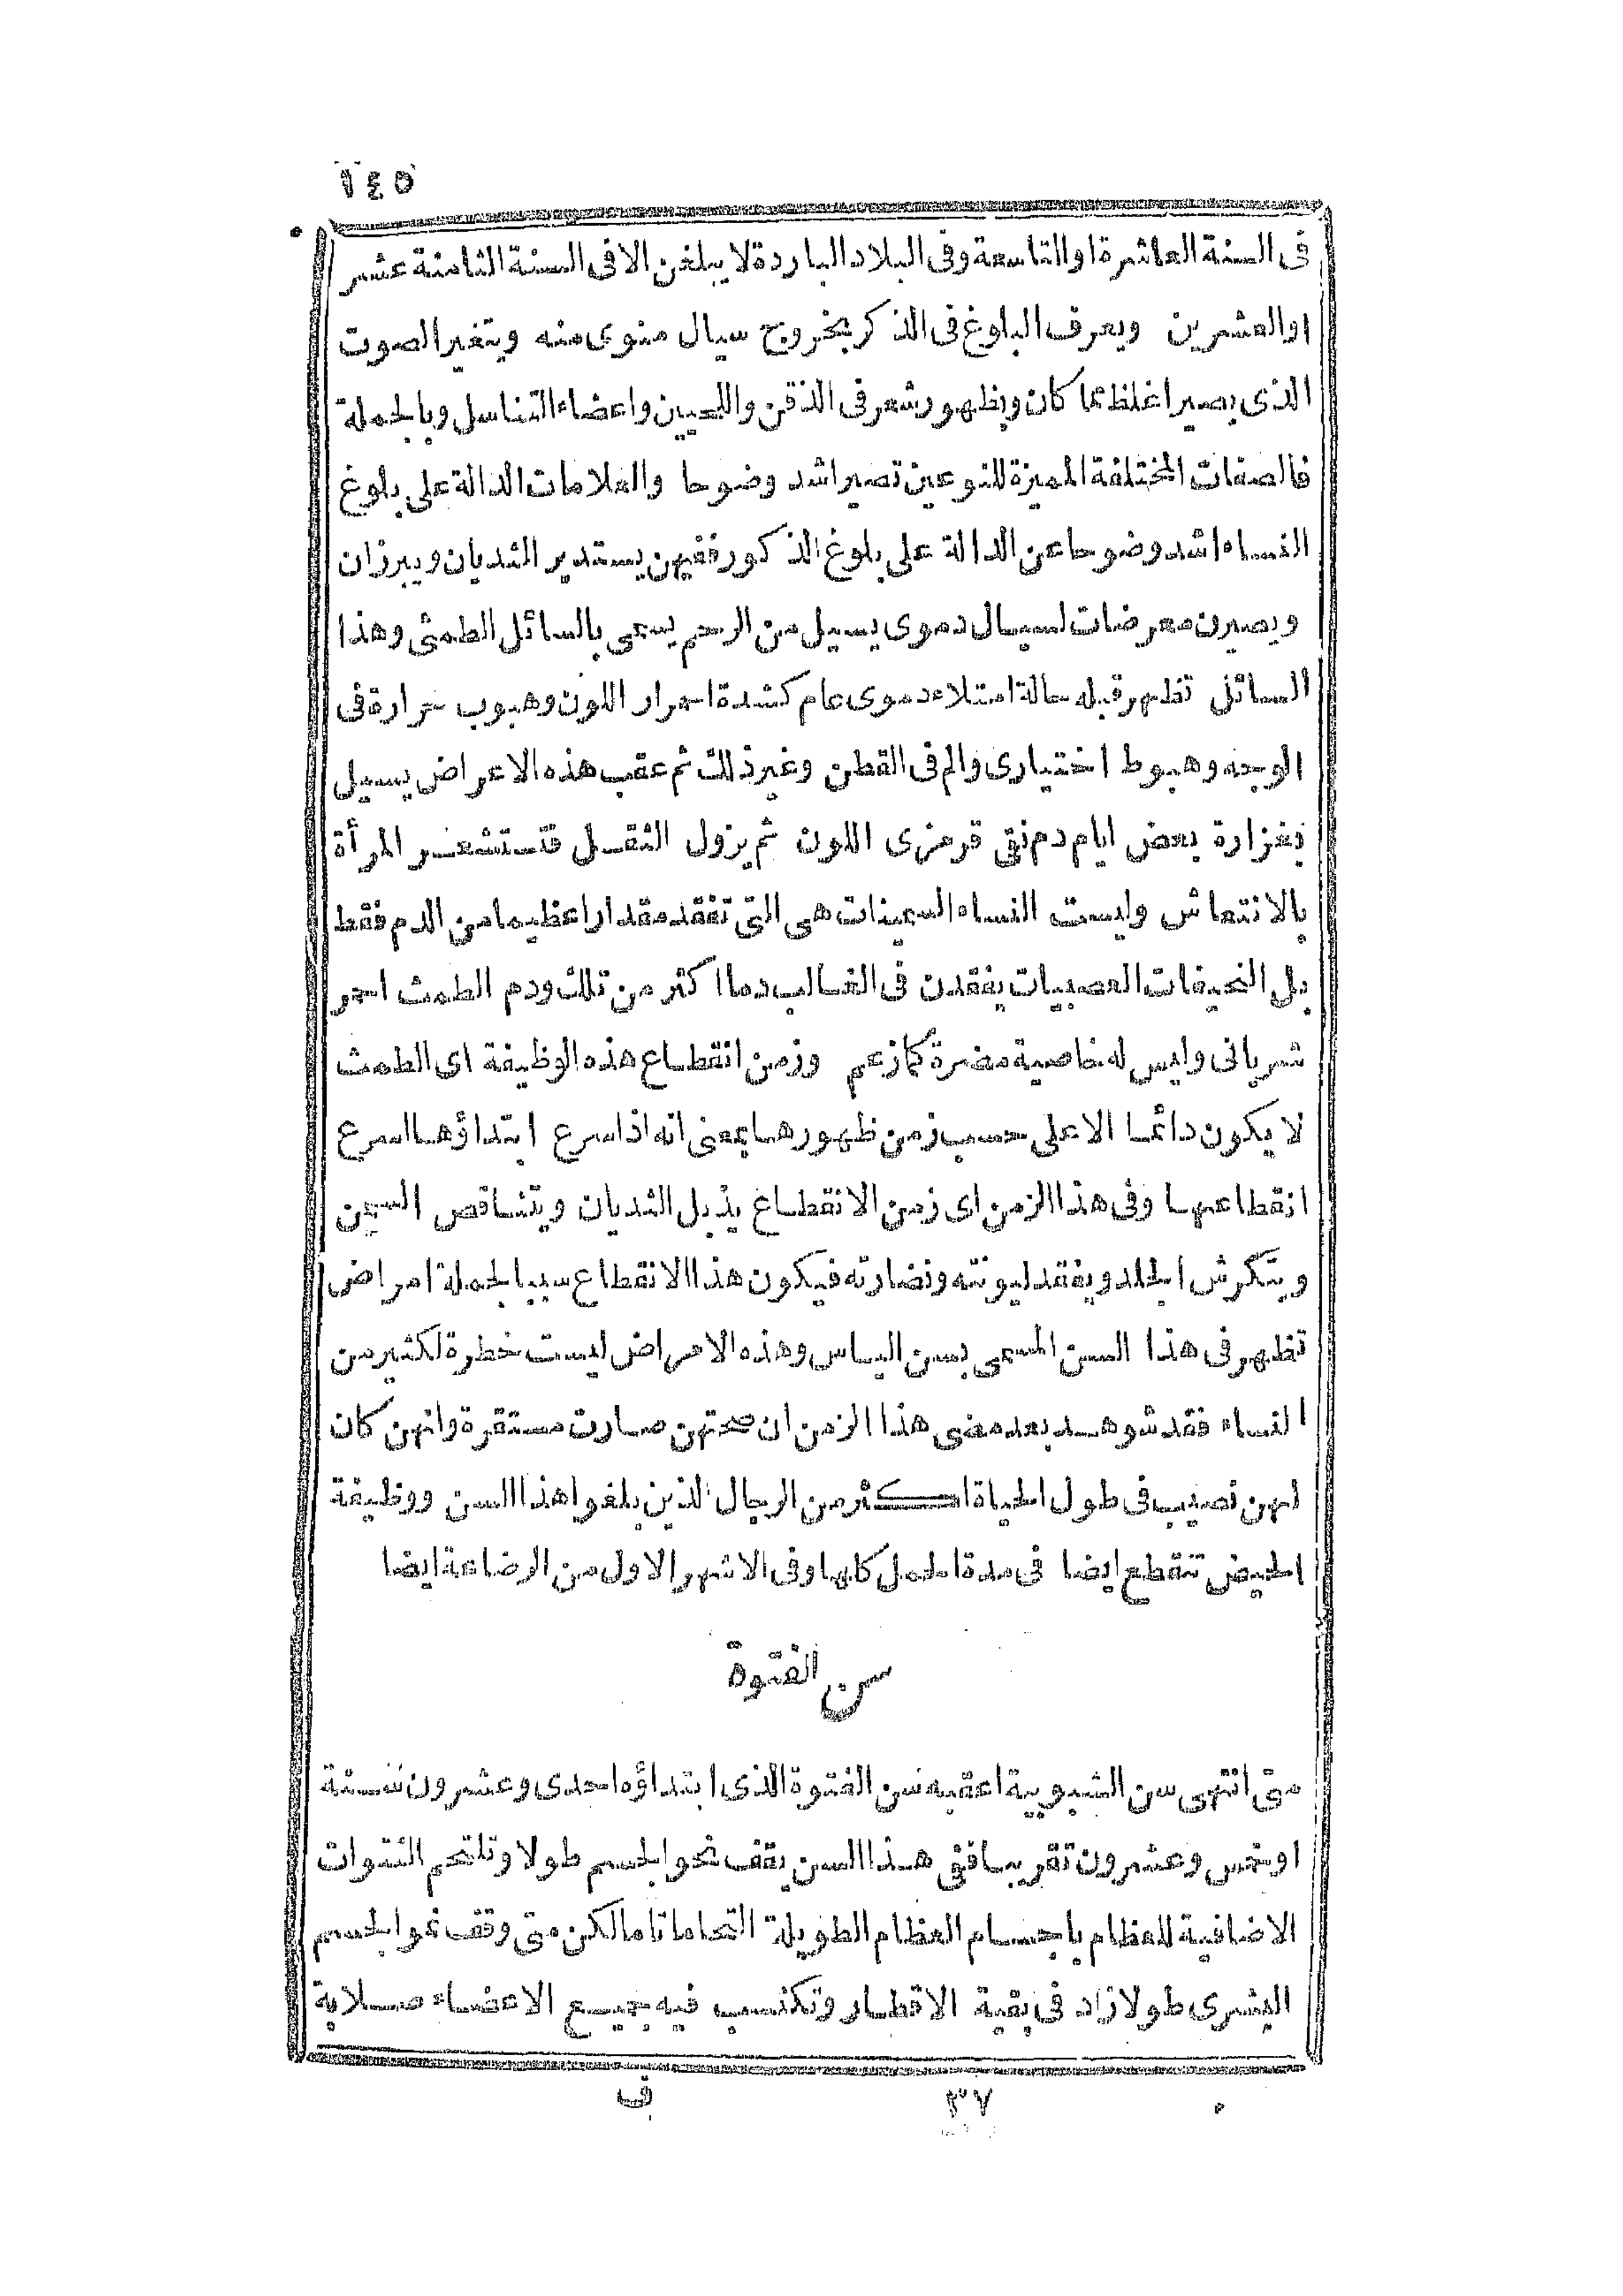 ١٤٥
فى السنة العاشرة او التاسعة وفى البلاد الباردة لا يبلغن الا فى السنة الثامنة عشر
او العشرين ويعرف البلوغ فى الذكر بخروج سيال منوى منه وبتغير الصوت
الذى يصير اغلظ مما كان وبظهور شعر فى الذقن واللحيين واعضاء التناسل وبالجملة
فالصفات المختلفة المميزة للنوعين تصير اشد وضوحا والعلامات الدالة على بلوغ
النساء اشد وضوحا عن الدالة على بلوغ الذكور ففيهن يستدير الثديان ويبرزان
ويصيرن معرضات لسيال دموى يسيل من الرحم يسمى بالسائل الطمثى وهذا
السائل تظهر قبله حالة امتلاء دموى عام كشدة احمرار اللون وهبوب حرارة فى
الوجه وهبوط اختيارى والم فى القطن وغير ذلك ثم عقب هذه الاعراض يسيل
بغزارة بعض ايام دم نقى قرمزى اللون ثم يزول الثقل فتستشعر المرأة
بالانتعاش وليست النساء السمينات هى التى تفقد مقدارا عظيما من الدم فقط
بل النحيفات العصبيات يفقدن فى الغالب دما اكثر من تلك ودم الطمث احمر
شريانى وليس له خاصية مضرة كما زعم وزمن انقطاع هذه الوظيفة اى الطمث
لا يكون دائما الا على حسب زمن ظهورها بمعنى انه اذا سرع ابتداؤها اسرع
انقطاعها وفى هذا الزمن اى زمن الانقطاع يذبل الثديان ويتناقص السمن
ويتكرش الجلد ويفقد ليونته ونضارته فيكون هذا الانقطاع سببا لجملة امراض
تظهر فى هذا السن المسمى بسن الياس وهذه الامراض ليست خطرة لكثير من
النساء فقد شوهد بعد مضى هذا الزمن ان صحتهن صارت مستقرة وانهن كان
لهن نصيب فى طول الحياة اكثر من الرجال الذين بلغوا هذا السن ووظيفة
الحيض تنقطع ايضا فى مدة الحمل كلها وفى الاشهر الاول من الرضاعة ايضا
سن الفتوة
متى انتهى سن الشبوبية اعقبه سن الفتوة الذى ابتداؤه احدى وعشرون سنة
او خمس وعشرون تقريبا ففى هذا السن يقف نحو الجسم طولا وتلتحم النتوات
الاضافية للعظام باجسام العظام الطويلة التحاما تاما لكن متى وقف نمو الجسم
البشرى طولا زاد فى بقية الاقطار وتكتسب فيه جميع الاعضاء صلابة
٣٧ ق